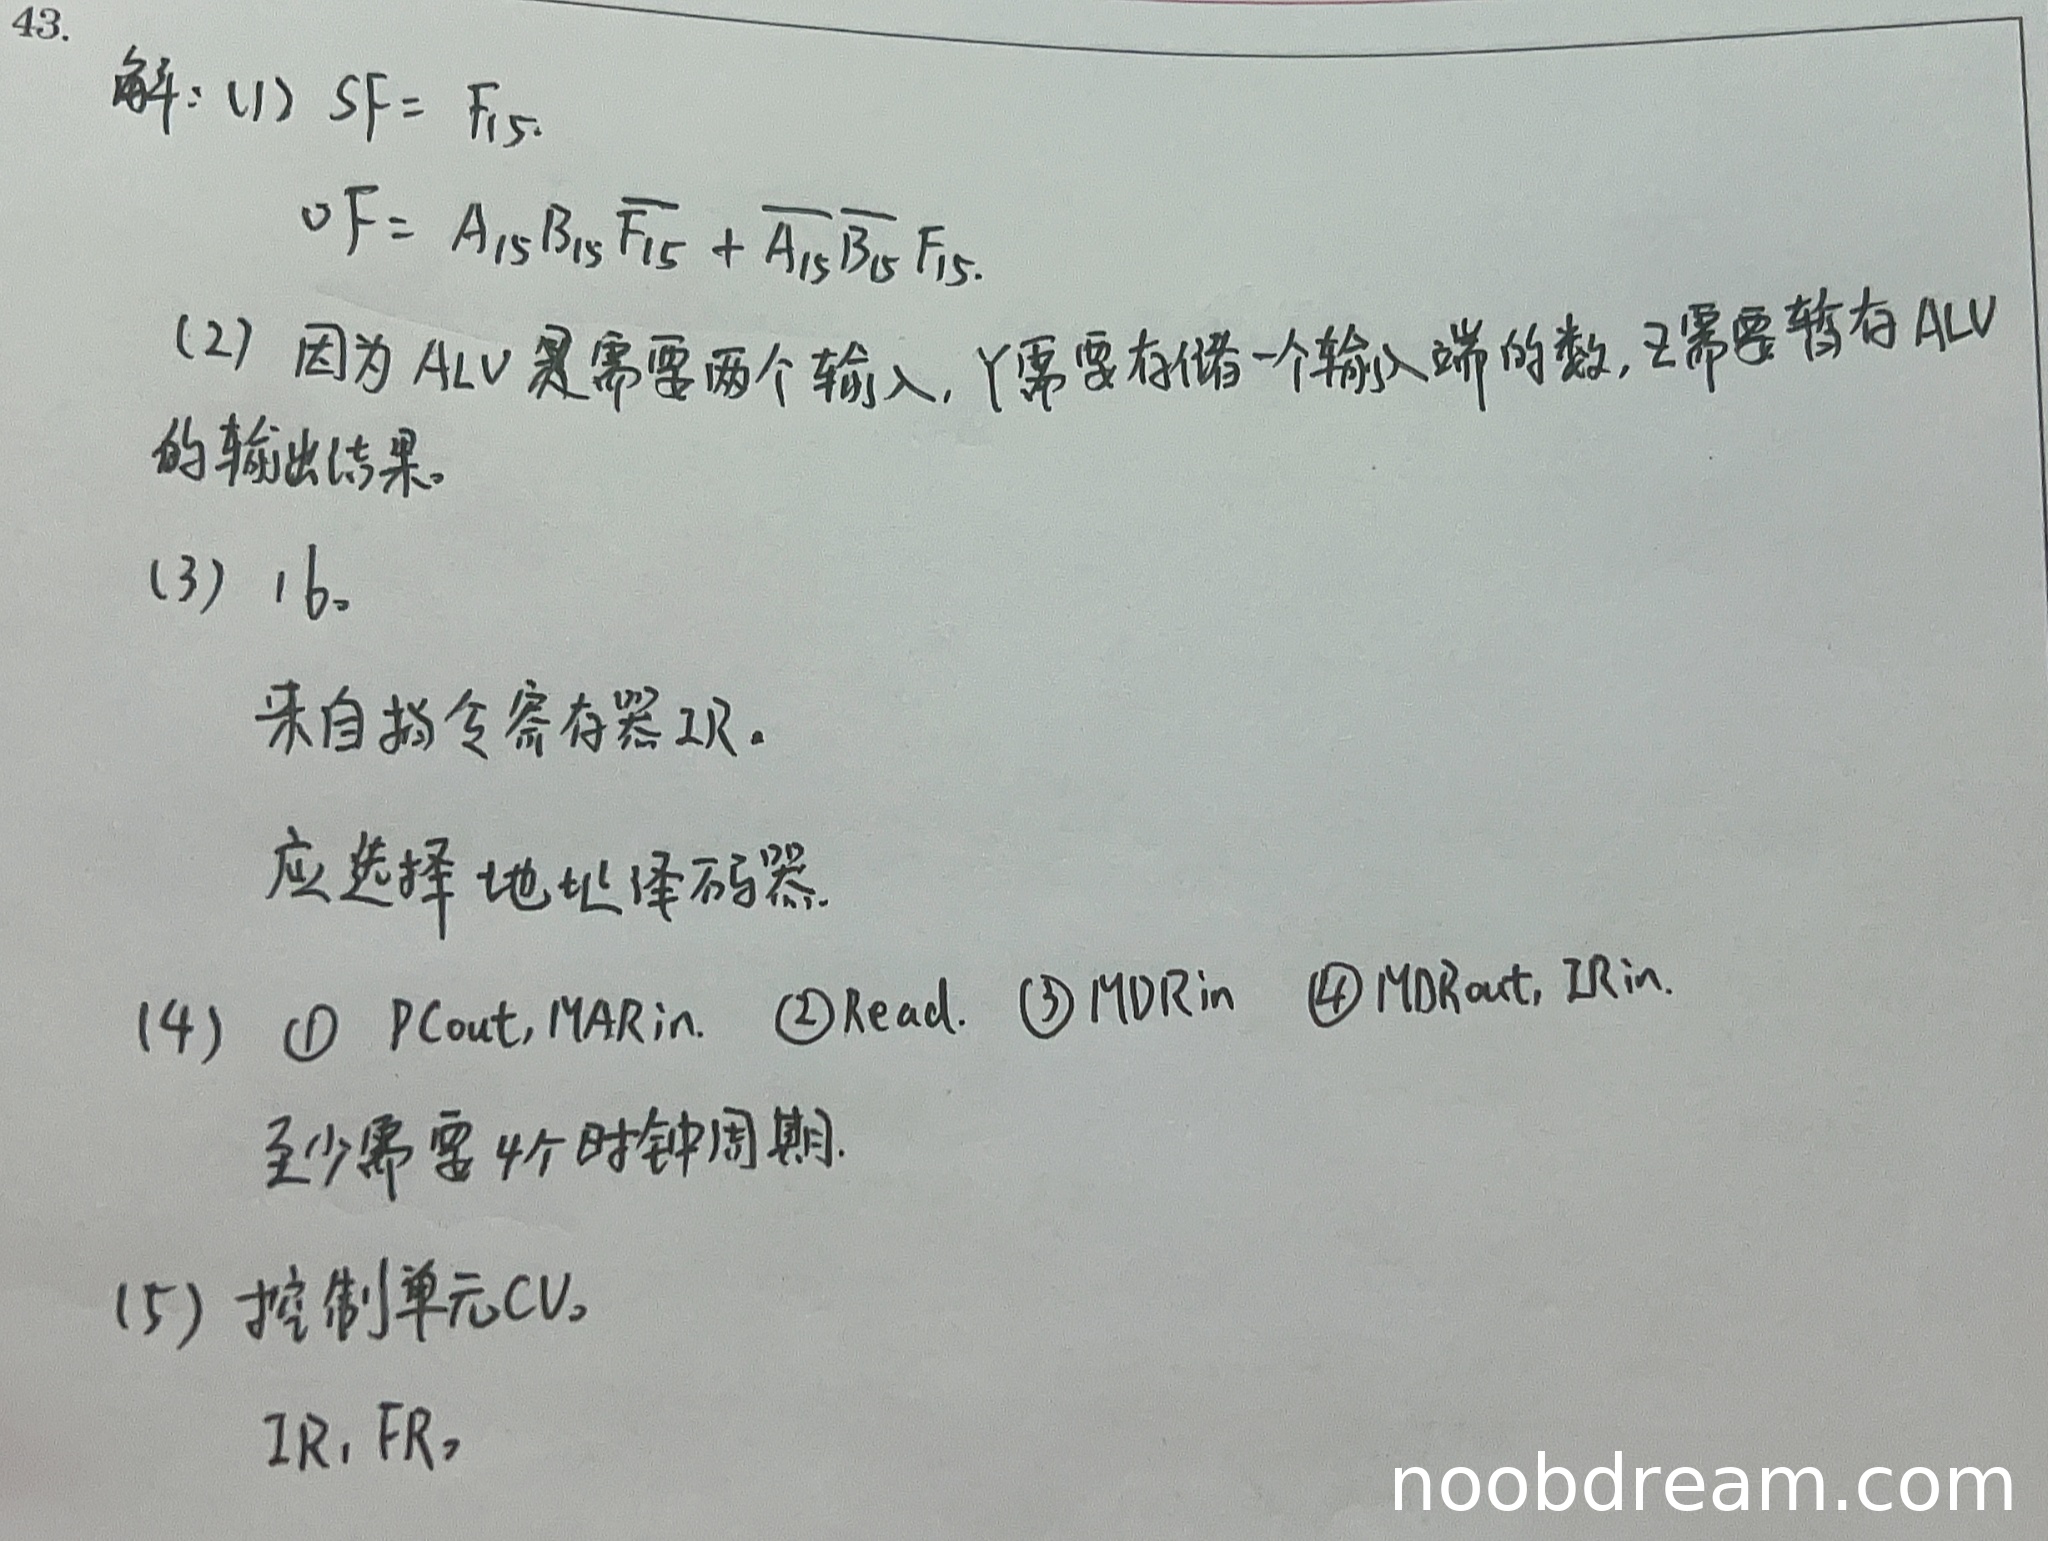 43.
解：(1) SF = F₁₅.
OF = A₁₅B₁₅F̅₁₅ + A̅₁₅B̅₁₅F₁₅.
(2) 因为ALU需要两个输入，Y需要存储一个输入端的数，Z需要暂存ALU
的输出结果。
(3) 16。
来自指令寄存器IR.
应选择地址译码器.
(4) ① PCout, MARin. ② Read. ③ MDRin ④ MDRout, IRin.
至少需要4个时钟周期.
(5) 控制单元CU。
IR, FR。
noobdream.com